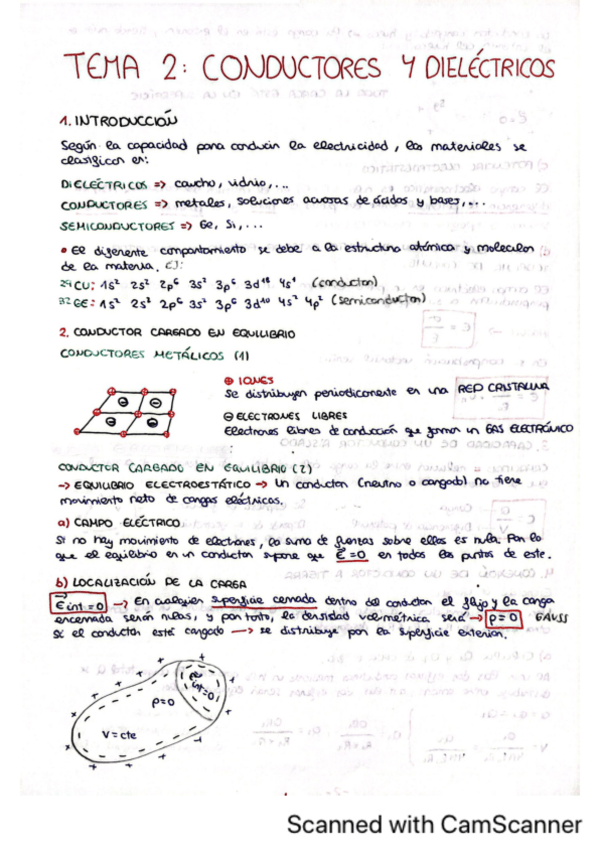 TEMA 2: CONDUCTORES Y DIELÉCTRICOS
1. INTRODUCCIÓN
Según la capacidad para conducir la electricidad, los materiales se
clasifican en:
DIELÉCTRICOS => caucho, vidrio,...
CONDUCTORES => metales, soluciones acuosas de ácidos y bases,...
SEMICONDUCTORES => Ge, Si,...
• El diferente comportamiento se debe a la estructura atómica y molecular
de la materia. EJ:
²⁹CU: 1s² 2s² 2p⁶ 3s² 3p⁶ 3d¹⁰ 4s¹ (conductor)
³²GE: 1s² 2s² 2p⁶ 3s² 3p⁶ 3d¹⁰ 4s² 4p² (semiconductor)
2. CONDUCTOR CARGADO EN EQUILIBRIO
CONDUCTORES METÁLICOS (1)
⊕ IONES
Se distribuyen periodicamente en una RED CRISTALINA
⊖ ELECTRONES LIBRES
Electrones libres de conducción que forman un GAS ELECTRÓNICO
CONDUCTOR CARGADO EN EQUILIBRIO (2)
-> EQUILIBRIO ELECTROESTÁTICO -> Un conductor (neutro o cargado) no tiene
movimiento neto de cargas eléctricas.
a) CAMPO ELÉCTRICO
Si no hay movimiento de electrones, la suma de fuerzas sobre ellos es nula. Por lo
que el equilibrio en un conductor supone que E⃗=0 en todos los puntos de este.
b) LOCALIZACIÓN DE LA CARGA
E⃗ int = 0 -> En cualquier superficie cerrada dentro del conductor el flujo y la carga
encerrada serán nulas, y por tanto, la densidad volumétrica será -> ρ=0 GAUSS
Si el conductor está cargado -> se distribuye por la superficie exterior.
E⃗ int=0
ρ=0
V=cte
Scanned with CamScanner